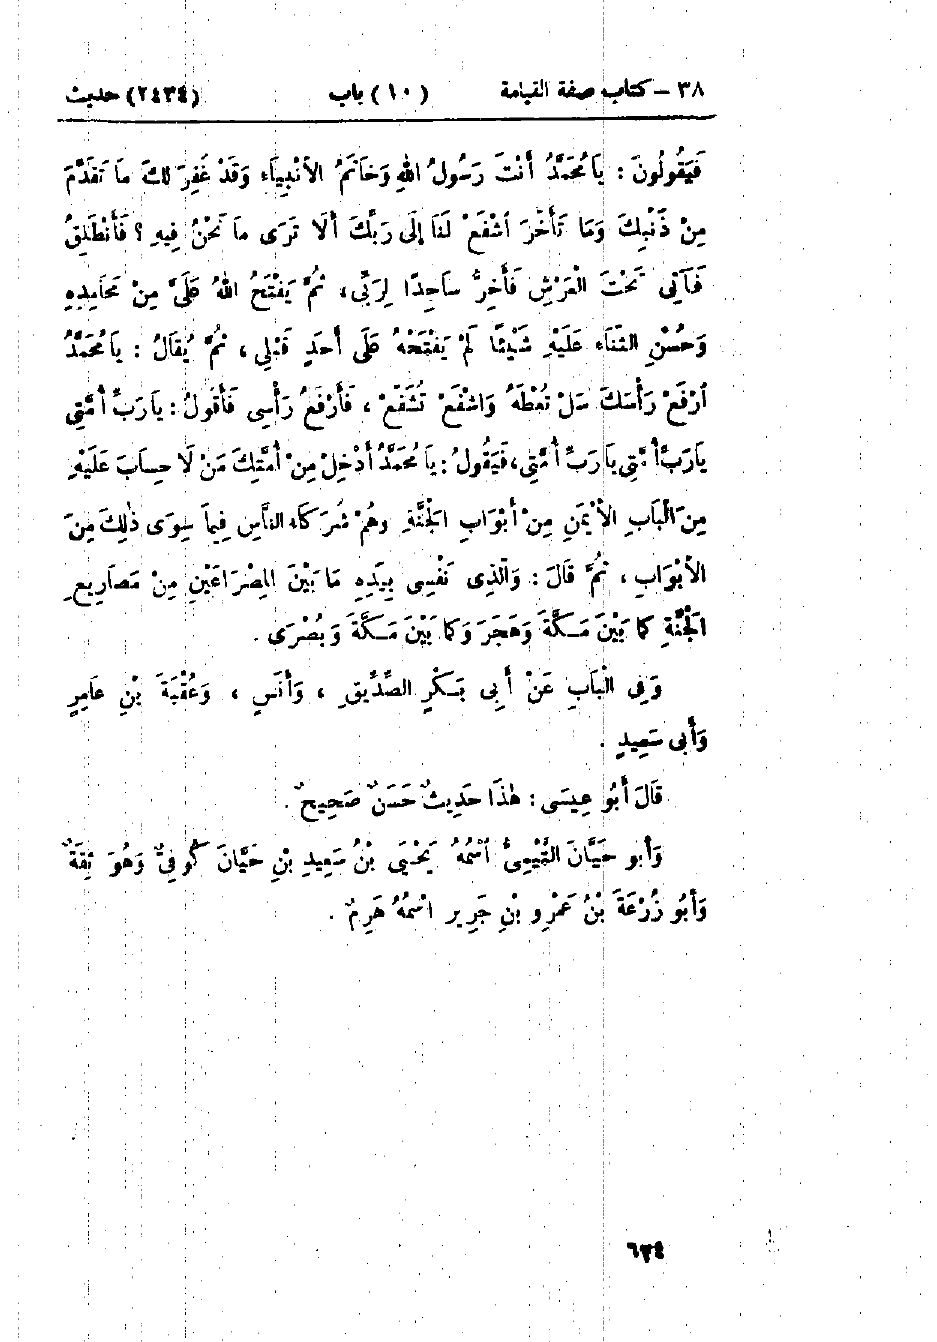 ٣٨ – كتاب صفة القيامة (١٠) باب (٢٤٣٤) حديث
فَيَقُولُونَ : يَا مُحَمَّدُ أَنْتَ رَسُولُ اللهِ وَخَاتَمُ الأَنْبِيَاءِ وَقَدْ غُفِرَ لَكَ مَا تَقَدَّمَ
مِنْ ذَنْبِكَ وَمَا تَأَخَّرَ اشْفَعْ لَنَا إِلَى رَبِّكَ أَلَا تَرَى مَا نَحْنُ فِيهِ ؟ فَأَنْطَلِقُ
فَآتِي تَحْتَ الْعَرْشِ فَأَخِرُّ سَاجِدًا لِرَبِّي ، ثُمَّ يَفْتَحُ اللهُ عَلَيَّ مِنْ مَحَامِدِهِ
وَحُسْنِ الثَّنَاءِ عَلَيْهِ شَيْئًا لَمْ يَفْتَحْهُ عَلَى أَحَدٍ قَبْلِي ، ثُمَّ يُقَالُ : يَا مُحَمَّدُ
ارْفَعْ رَأْسَكَ سَلْ تُعْطَهُ وَاشْفَعْ تُشَفَّعْ ، فَأَرْفَعُ رَأْسِي فَأَقُولُ : يَا رَبِّ أُمَّتِي
يَا رَبِّ أُمَّتِي يَا رَبِّ أُمَّتِي ، فَيَقُولُ : يَا مُحَمَّدُ أَدْخِلْ مِنْ أُمَّتِكَ مَنْ لَا حِسَابَ عَلَيْهِ
مِنَ الْبَابِ الأَيْمَنِ مِنْ أَبْوَابِ الْجَنَّةِ وَهُمْ شُرَكَاءُ النَّاسِ فِيمَا سِوَى ذَٰلِكَ مِنَ
الأَبْوَابِ ، ثُمَّ قَالَ : وَالَّذِي نَفْسِي بِيَدِهِ مَا بَيْنَ الْمِصْرَاعَيْنِ مِنْ مَصَارِيعِ
الْجَنَّةِ كَمَا بَيْنَ مَكَّةَ وَهَجَرَ وَكَمَا بَيْنَ مَكَّةَ وَبُصْرَى .
وَفِي الْبَابِ عَنْ أَبِي بَكْرٍ الصِّدِّيقِ ، وَأَنَسٍ ، وَعُقْبَةَ بْنِ عَامِرٍ
وَأَبِي سَعِيدٍ .
قَالَ أَبُو عِيسَى : هَٰذَا حَدِيثٌ حَسَنٌ صَحِيحٌ .
وَأَبُو حَيَّانَ التَّيْمِيُّ اسْمُهُ يَحْيَى بْنُ سَعِيدِ بْنِ حَيَّانَ كُوفِيٌّ وَهُوَ ثِقَةٌ
وَأَبُو زُرْعَةَ بْنُ عَمْرِو بْنِ جَرِيرٍ اسْمُهُ هَرِمٌ .
٦٢٤